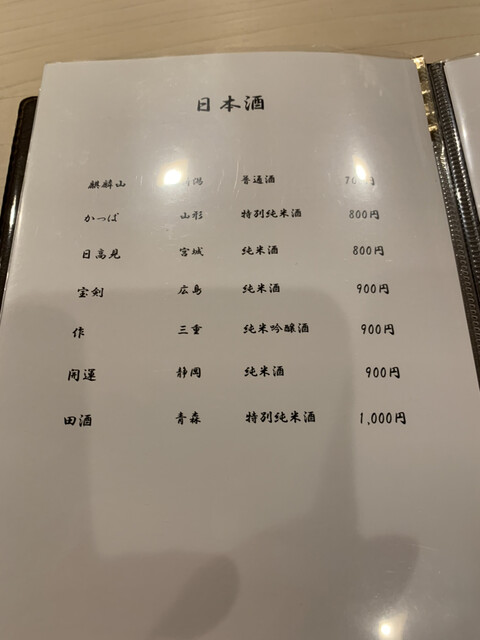 日本酒
麒麟山 潟 普通酒
かっぱ 山形 特別純米酒 800円
日高見 宮城 純米酒 800円
宝剣 広島 純米酒 900円
作 三重 純米吟醸酒 900円
開運 静岡 純米酒 900円
田酒 青森 特別純米酒 1,000円